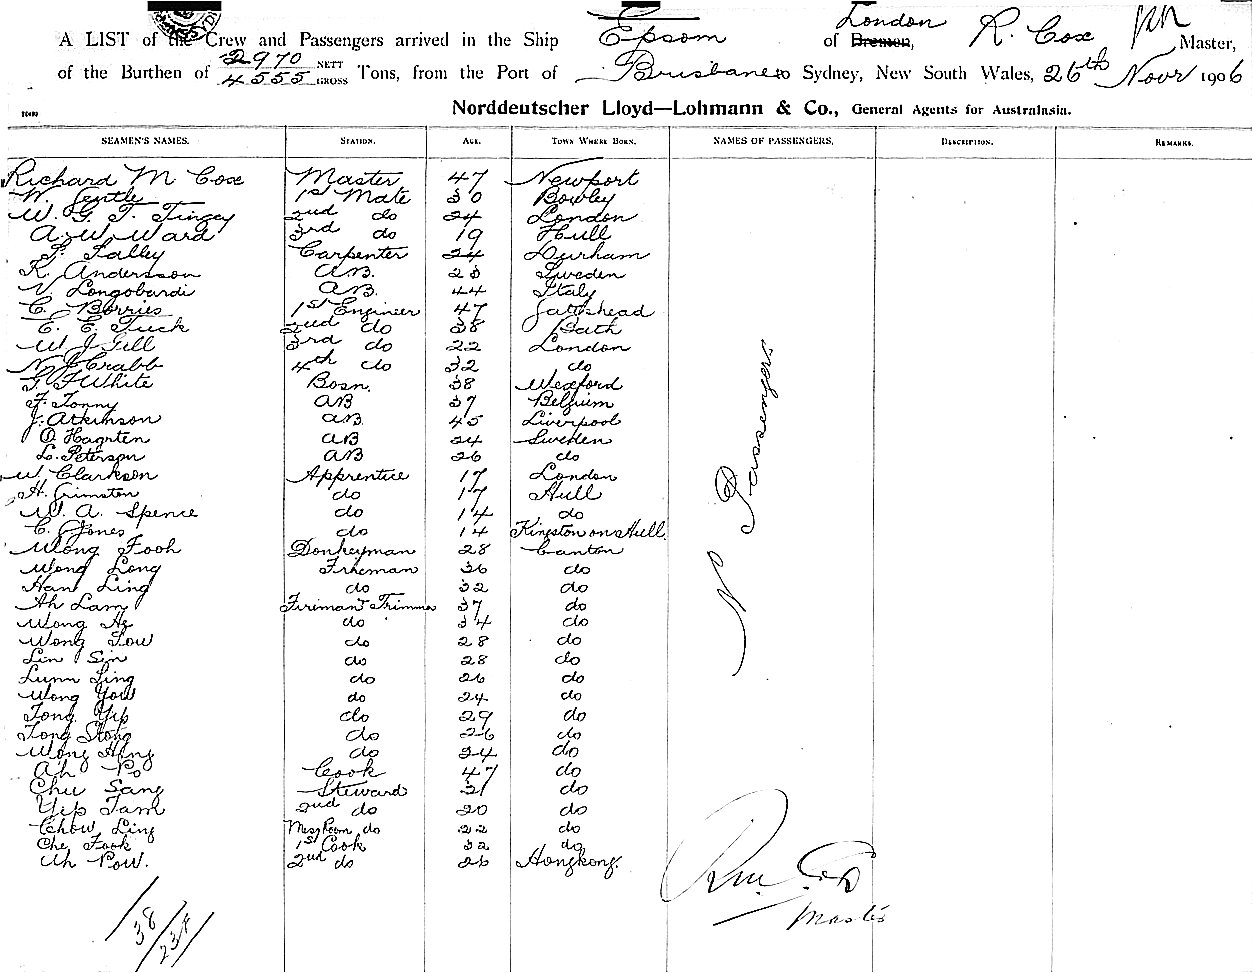 A LIST of the Crew and Passengers arrived in the Ship Epsom of Bremen, London R. Cox Master,
of the Burthen of 2970 NETT 4555 GROSS Tons, from the Port of Brisbane to Sydney, New South Wales, 26th Novr 1906
Norddeutscher Lloyd—Lohmann & Co., General Agents for Australasia.
SEAMEN'S NAMES. STATION. AGE. TOWN WHERE BORN. NAMES OF PASSENGERS. DESCRIPTION. REMARKS.
Richard M Cox Master 47 Newport
W. Gentle 1st Mate 30 Bowley
W. G. T. Tingey 2nd do 24 London
A. W. Ward 3rd do 19 Hull
Talley Carpenter 24 Durham
K. Andersson A.B. 23 Sweden
V. Longobardi A.B. 44 Italy
C. Borries 1st Engineer 47 Gateshead
E. E. Tuck 2nd do 38 Bath
W J Gill 3rd do 22 London
N J Crabb 4th do 32 do
T. F White Bosn. 38 Wexford
F. Tonny AB 37 Belgium
J. Atkinson AB 45 Liverpool
O. Hagnten AB 24 Sweden
L. Peterson AB 26 do
W. Clarkson Apprentice 17 London
H. Grimston do 17 Hull
W. A. Spence do 14 do
C. Jones do 14 Kingston on Hull
Wong Fooh Donkeyman 28 Canton
Wong Long Fireman 36 do
Han Ling do 32 do
Ah Lam Fireman & Trimmer 37 do
Wong do 34 do
Wong Tow do 28 do
Lin Sin do 28 do
Lunn Ling do 26 do
Wong Yow do 24 do
Tong Yip do 29 do
Tong Stong do 26 do
Wong Hing do 24 do
Ah Po Cook 47 do
Chu Sang Steward 31 do
Yip Tam 2nd do 20 do
Chow Ling Mess Room do 22 do
Che Fook 1st Cook 32 do
Ah Pow. 2nd do 26 Hongkong.
N Passengers
Rm. Cox
Master
38